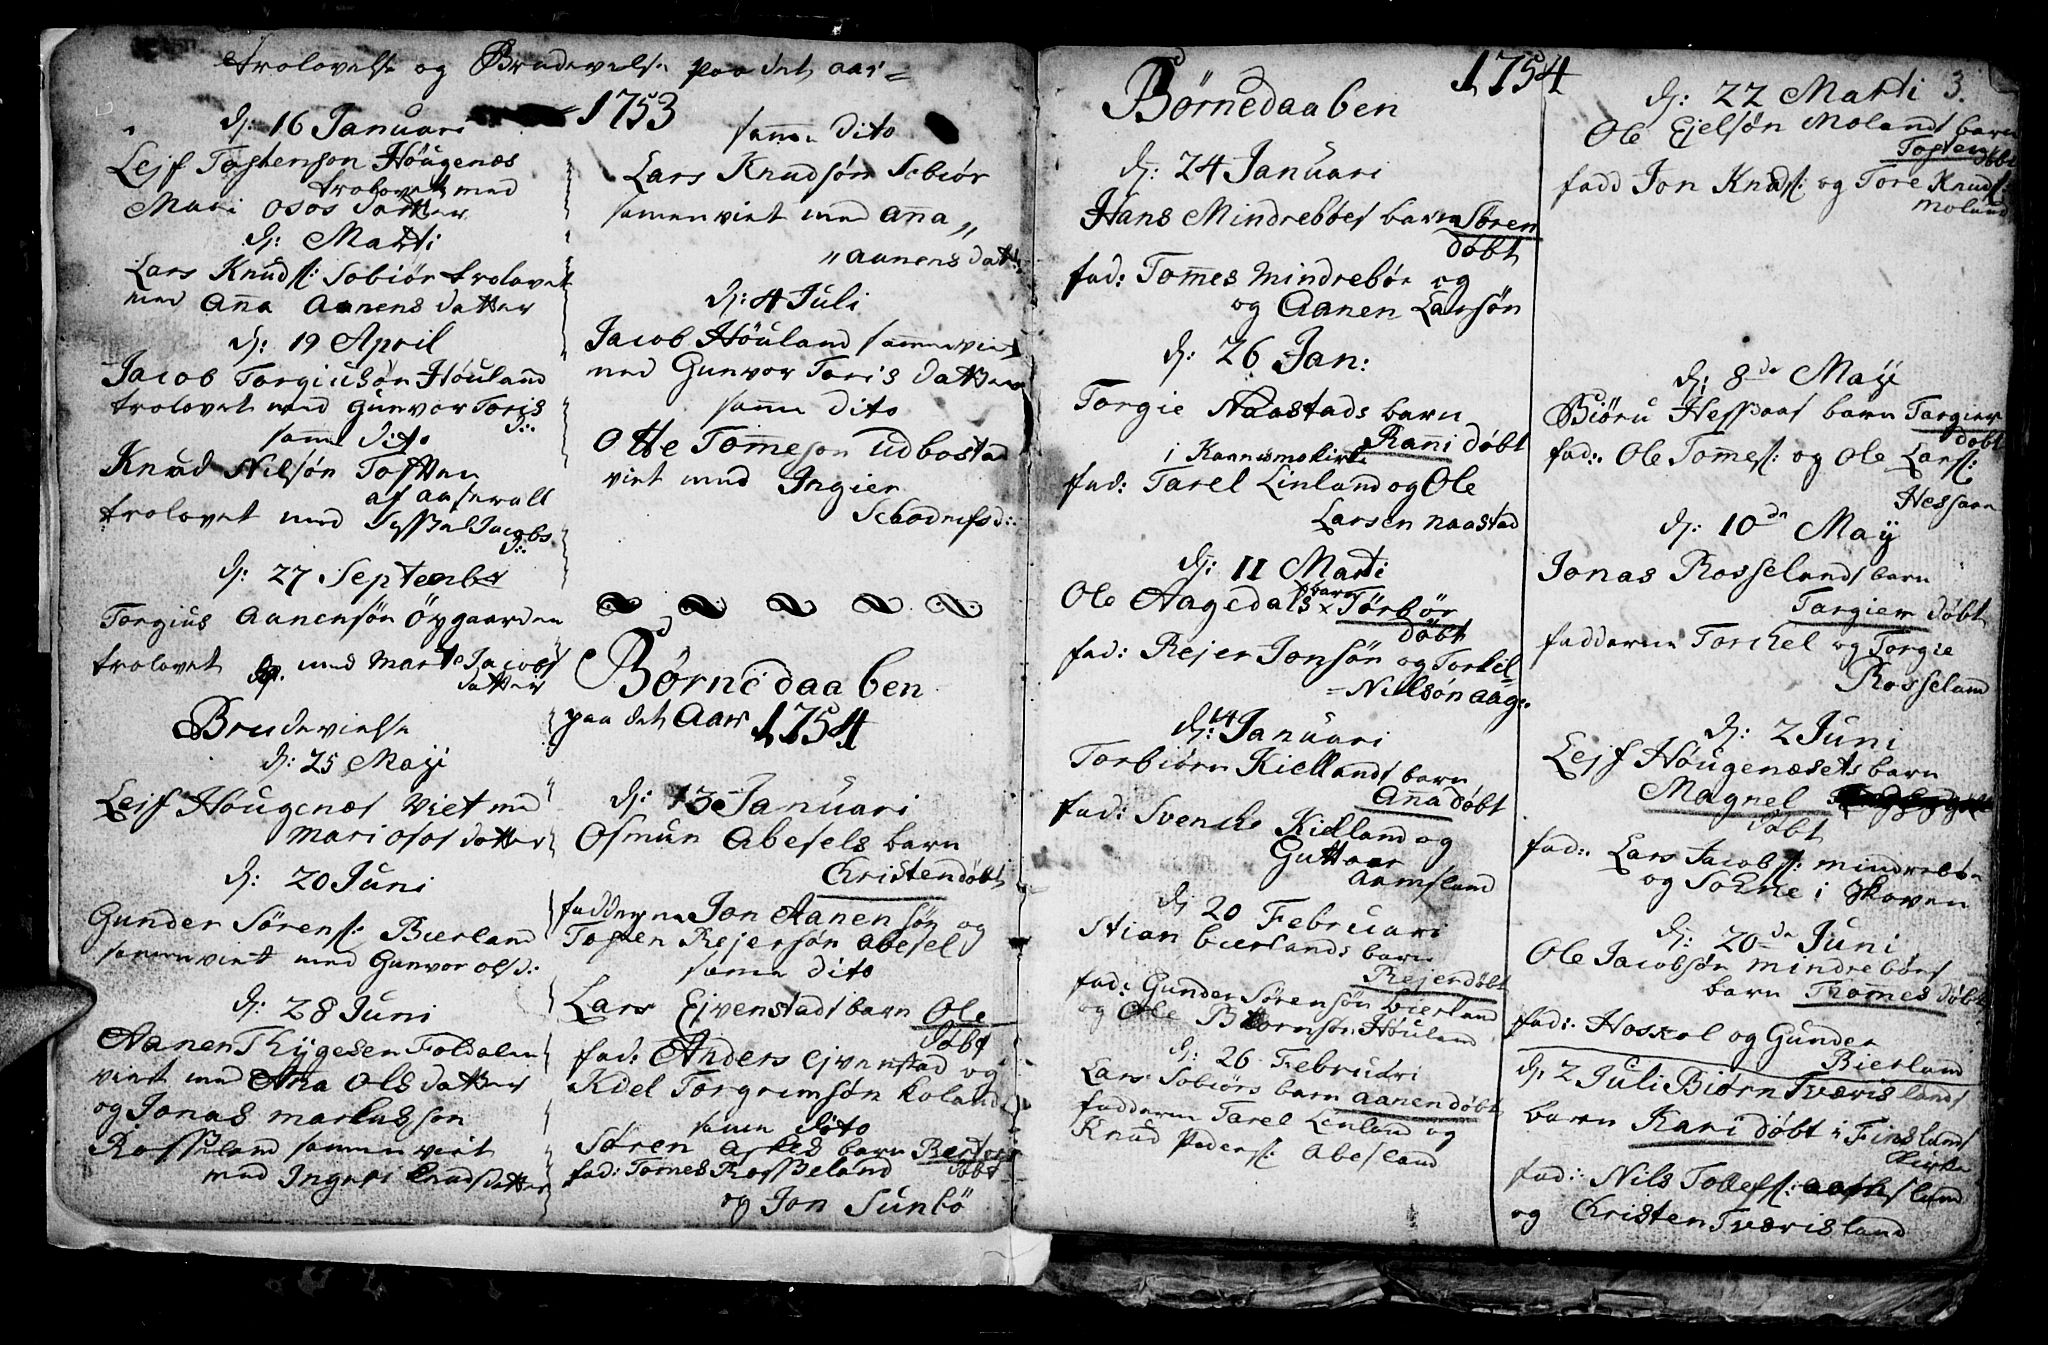 Trolovelse og Brudevielse paa det aar
1753
dj: 16 Januari
Lejf Tostenson Höugenæs
trolovet med
Mari Osos datter
dj: Marti
Lars Knuds: Sobiör trolovet
med Anna Aanens datter
dj: 19 April
Jacob Torgiusön Höuland
trolovet med Gunvor Toris
d:
samme dito
Knud Nilsön Toften
af aaserall
trolovet med Jacobs
d:
dj: 27 September
Torgius Aanensön Öygaarden
trolovet med Marte Jacobs
datter
Brudevielse
dj: 25 Maji
Lejf Höugenæs viet med
Mari Osos datter
dj: 20 Juni
Gunder Sörens: Bierland
samenviet med Gunvor Olsd:
dj: 28 Juni
Aanen Thÿgesen Foldalen
viet med Ana Ols datter
og Jonas Markusson
Rosseland sammenviet
med Ingeri Knudsdatter
samme dito
Lars Knudsön Sobiör
samenviet med Anna
Aanens datt:
dj: 4 Juli
Jacob Höuland sammenviet
med Gunvor Toris datter
samme dito
Otte Tommeson Udbostad
viet med Ingier
d:
Börnedaaben
paa det Aar 1754
dj: 13 Januari
Osmun Abesels barn
Christen döbt
fadderne Jon Aanensön og
Tosten Rejersön Abesel
samme dito
Lars Ejvenstads barn Ole
döbt
fad: Anders Ejvenstad og
Kiel Torgrimsön Roland
samme dito
Sören Askes barn Bertor
döbt
fad: Tomes Rosseland
og Jon Sunbö
1754
Börnedaaben
dj: 24 Januari
Hans Mindreböes barn Sören
döbt
fad: Tommes Mindreböe og
og Aanen Larsön
dj: 26 Jan:
Torgie Naastads barn
Ranni döbt
i
fad: Tarel Linland og Ole
Larsen Naastad
dj: 11 Marti
Ole Aagedals barn Törbör
döbt
fad: Rejer Jonsön og Torkel
Nilsön Aag:
dj: 14 Januari
Torbiörn Kiellands barn
Anna döbt
fad: Svenche Kielland og
Guttor
Aamsland
dj 20 Februari
Stian Bierlands barn
Rejer döbt
fad: Gunder Sörensön Bierland
og Ole Biörnsön Höuland
dj: 26 Februari
Lars Sobiörs barn Aanen döbt
fadderne Tarel Linland og
Knud Peders: Abesland
3.
dj: 22 Marti
Ole Ejelsön Molands barn
Tosten döbt
fadd Jon Knuds: og Tore Knuds:
Moland
dj: 8de Maji
Biöru Hessaas barn Targier
döbt
fad: Ole Tommes: og Ole Lars:
Hessaan
dj: 10de Maÿ
Jonas Rosselands barn
Targier döbt
fadderne Torchel og Torgie
Rosseland
dj: 2 Juni
Lejf Höugenæsets barn
Magnel
döbt
fad: Lars Jacobs: Mindreböe
og Sokne i Skoven
dj: 20de Juni
Ole Jacobsön Mindreböes
barn Trommes döbt
fad: Hoskol og Gunder
Bierland
dj 2 Juli Biörn Tværislands
barn Kari döbt i Finslands
kirke
fad: Nils Tolless:
og Christen Tværisland